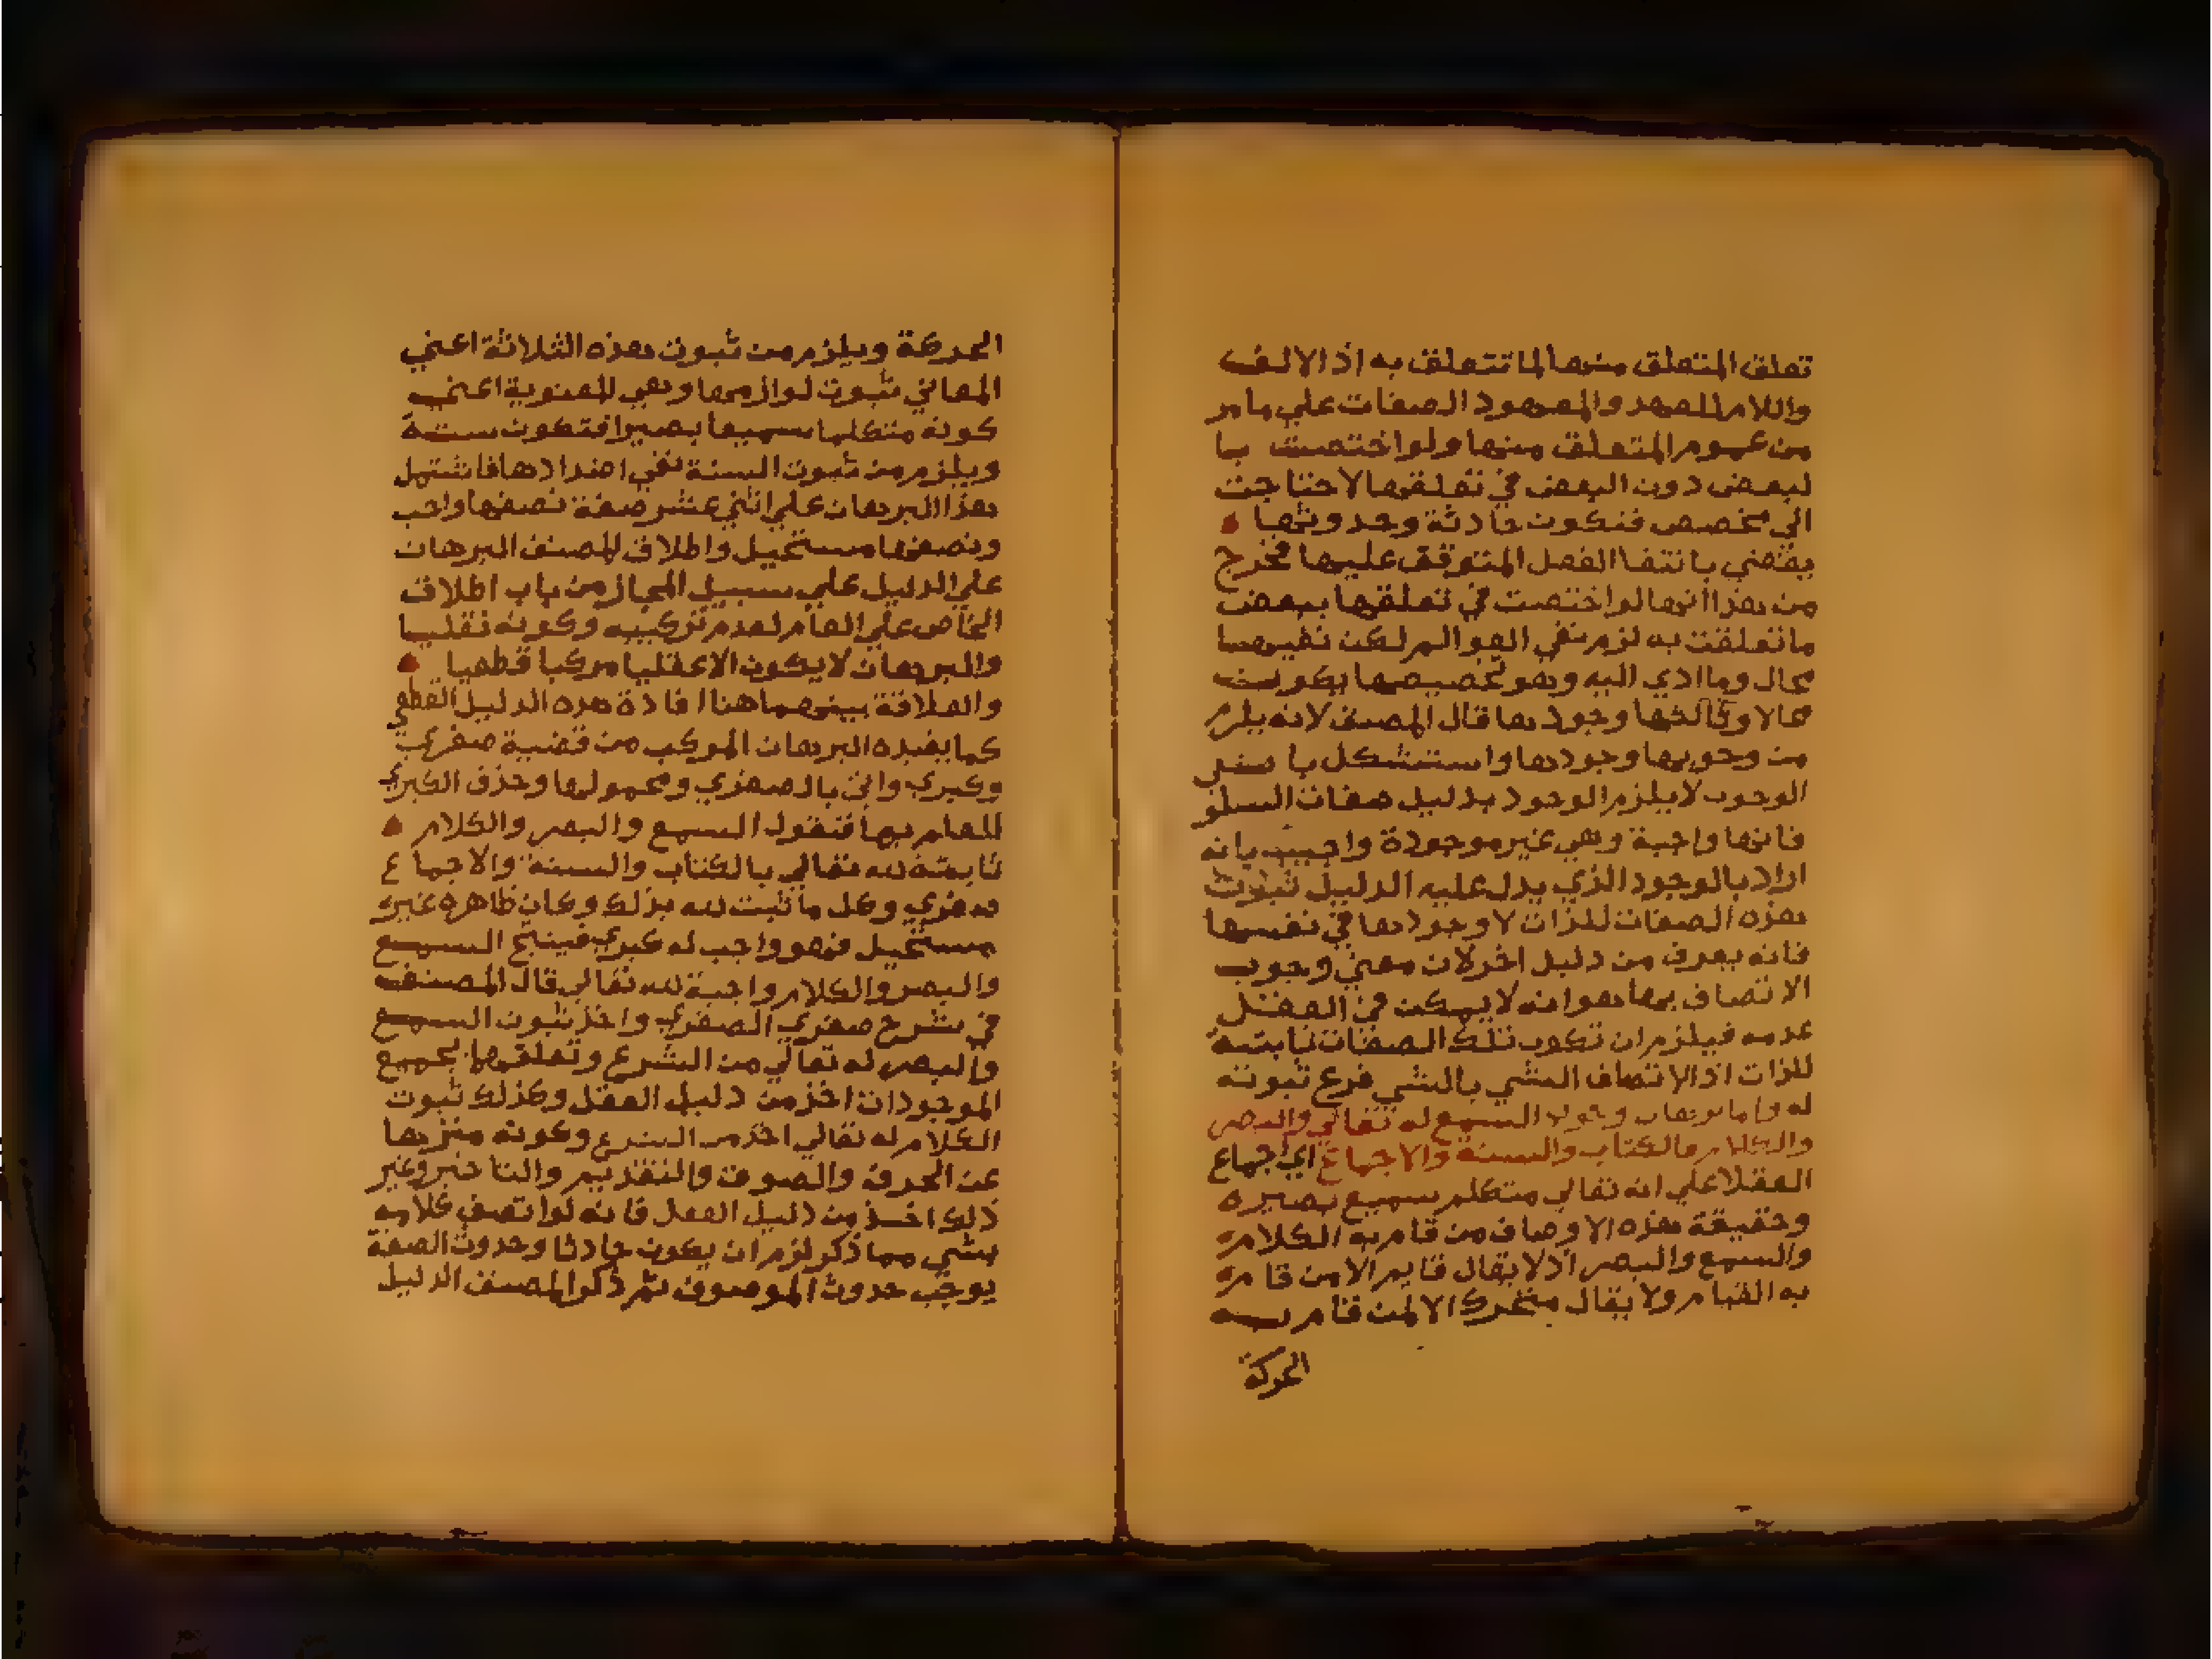 تعلق المتعلق منها لما تتعلق به اذ الالف
واللام للعهد والمعهود الصفات علي ما مر
من عموم المتعلق منها ولو اختصت با
لبعض دون البعض في تعلقها لاحتاجت
الي مخصص فتكون حادثة وحدوثها
يقضي بانتفا الفعل المتوقف عليها فخرج
من هذا انها لو اختصت في تعلقها ببعض
ما تعلقت به لزم نفي العوالم لكن نفيها
محال وما ادي اليه وهو تخصيصها يكون
محالا وثالثها وجودها قال المصنف لانه يلزم
من وجوبها وجودها واستشكل بان
الوجوب لا يلزم الوجود بدليل صفات السلو
فانها واجبة وهي غير موجودة واجيب بانه
اراد بالوجود الذي يدل عليه الدليل ثبوت
هذه الصفات للذات لا وجودها في نفسها
فانه يعرف من دليل اخر لان معني وجوب
الاتصاف بها هو انه لا يمكن في العقل
عدمه فيلزم ان تكون تلك الصفات ثابتة
للذات اذ الاتصاف الشي بالشي فرع ثبوته
له واما برهان وجوب السمع له تعالي والبصر
والكلام فالكتاب والسنة والاجماع اي اجماع
العقلا علي انه تعالي متكلم سميع بصير
وحقيقة هذه الاوصاف من قام به الكلام
والسمع والبصر اذ لا يقال قايم الا من قام
به القيام ولا يقال متحرك الا لمن قام به
الحركة
الحركة ويلزم من ثبوت هذه الثلاثة اعني
المعاني ثبوت لوازمها وهي المعنوية اعني
كونه متكلما سميعا بصيرا فتكون ستة
ويلزم من ثبوت الستة نفي اضدادها فاشتمل
هذا البرهان علي اثني عشر صفة نصفها واجب
ونصفها مستحيل واطلاق المصنف البرهان
علي الدليل علي سبيل المجاز من باب اطلاق
الخاص علي العام لعدم تركيبه وكونه نقليا
والبرهان لا يكون الا عقليا مركبا قطعيا
والعلاقة بينهما هنا افادة هذه الدليل القطع
كما يفيده البرهان المركب من قضية صغري
وكبري واتي بالصغري ومحمولها وحذف الكبري
للعلم بها فتقول السمع والبصر والكلام
ثابتة لله تعالي بالكتاب والسنة والاجماع
صغري وكل ما ثبت لله بذلك وكان ظاهره غير
مستحيل فهو واجب له كبري فينتج السمع
والبصر والكلام واجبة لله تعالي قال المصنف
في شرح صغري الصغري واخذ ثبوت السمع
والبصر له تعالي من الشرع وتعلقها بجميع
الموجودات اخذ من دليل العقل وكذلك ثبوت
الكلام له تعالي اخذ من الشرع وكونه منزها
عن الحرف والصوت والتقديم والتاخير وغير
ذلك اخذ من دليل العقل فانه لو اتصف كلامه
بشي مما ذكر لزم ان يكون حادثا وحدوث الصفة
يوجب حدوث الموصوف ثم ذكر المصنف الدليل